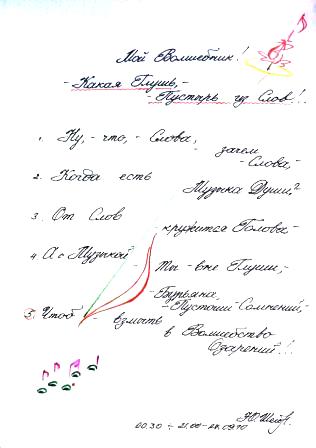 Мой Волшебник!
- Какая Глушь, -
- Пустырь из Слов!..
1. Ну, - что, - Слова, - зачем
- Слова, -
2. Когда есть
Музыка Души?
3. От Слов
- кружится Голова -
4. А с Музыкой
- Ты - вне Глуши, -
- Бурьяна,
- Пустоши - Сомнений, -
5. Чтоб - взмыть
в Волшебство
Озарений!!
00.30 ÷ 21.00